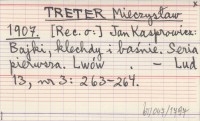 TRETER Mieczysław
1907. [Rec. o:] Jan Kasprowicz:
Bajki, klechdy i baśnie. Seria
pierwsza. Lwów . - Lud
13, nr 3: 263-264.